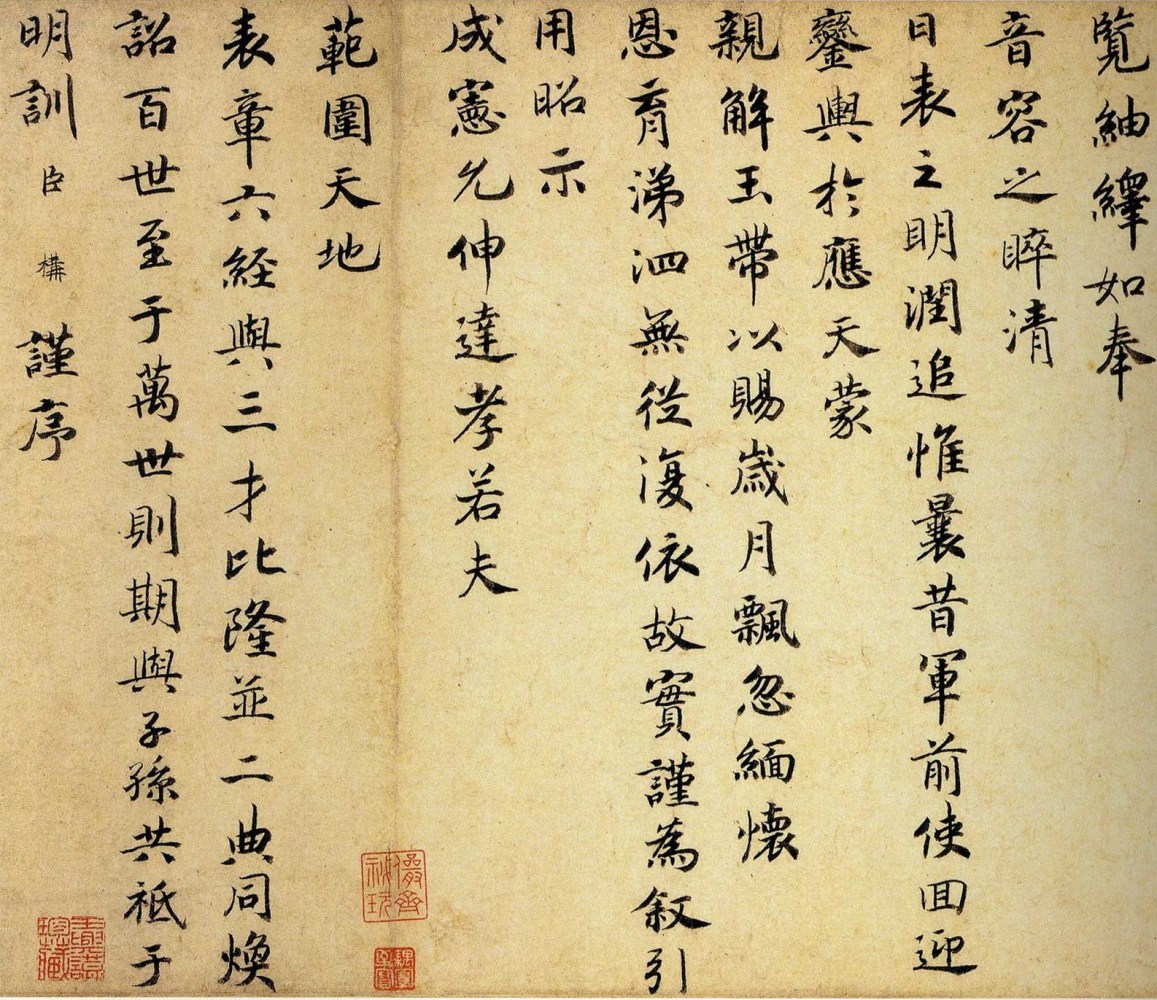 覽紬繹如奉
音容之睟清
日表之明潤追惟曩昔軍前使囬迎
鑾輿於應天蒙
親解玉帶以賜歲月飄忽緬懷
恩育涕泗無從復依故實謹為叙引
用昭示
成憲允伸達孝若夫
範圍天地
表章六経與三才比隆並二典同煥
詔百世至于萬世則期與子孫共祗于
明訓臣構謹序